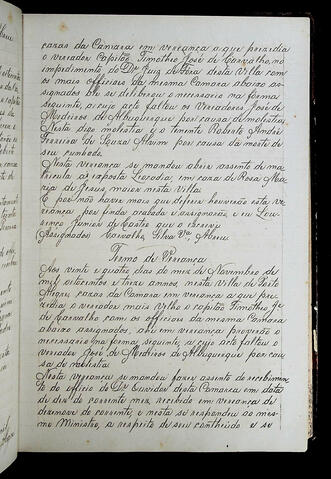 cazas da Camara em vereança a que prizidia
o vereador Capitão Timothio José de Carvalho, no
impedimento do Dr. Juiz de Fora desta Villa com
os mais officiaes da mesma Camara abaixo as-
signados ahi se deliberou o necessario na forma
seguinte, a cujo acto faltou os Vereadores José de
Medeiros de Albuquerque por causa de molestia.
Nesta digo molestia e o tenente Roberto André
Ferreira de Souza Alvim por causa da morte de
seu cunhado.
Nesta vereança se mandou abrir assento de ma-
tricula as exposta Leocadia, em caza de Rosa Ma-
ria de Jesus, maior nesta Villa.
E por não haver mais que deferir houverão esta ve-
riança por finda acabada e assignarão, e eu Lou-
renço Junior de Castro que o escrevy
(Assignados) Carvalho, Silva, Abreu
Termo de Vereança
Aos vinte e quatro dias do mez de Novembro de
mil oitocentos e treze annos, nesta Villa de Porto
Alegre, cazas da Camara em vereança a que pre-
zidia o vereador mais velho o capitão Timothio Jé
de Carvalho com os officiaes da mesma Camara
abaixo assignados, ahi em vereança proverão o
necessario na forma seguinte, a cujo acto faltou o
vereador José de Medeiros de Albuquerque por cau-
sa de molestia.
Nesta vereança se mandou fazer assento de recebimen-
to do officio do Dr. Ouvidor desta Comarca em data
de dez do corrente mez, recebido em vereança de
dezanove do corrente, e nesta se respondeu ao mes-
mo Ministro, a respeito de seu conthiudo e se